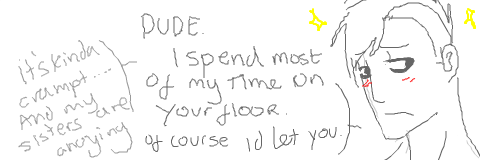 DUDE.
I spend most
of my Time on
your floor.
of course id let you.
It's kinda
crampt....
And my
sisters are
anoying